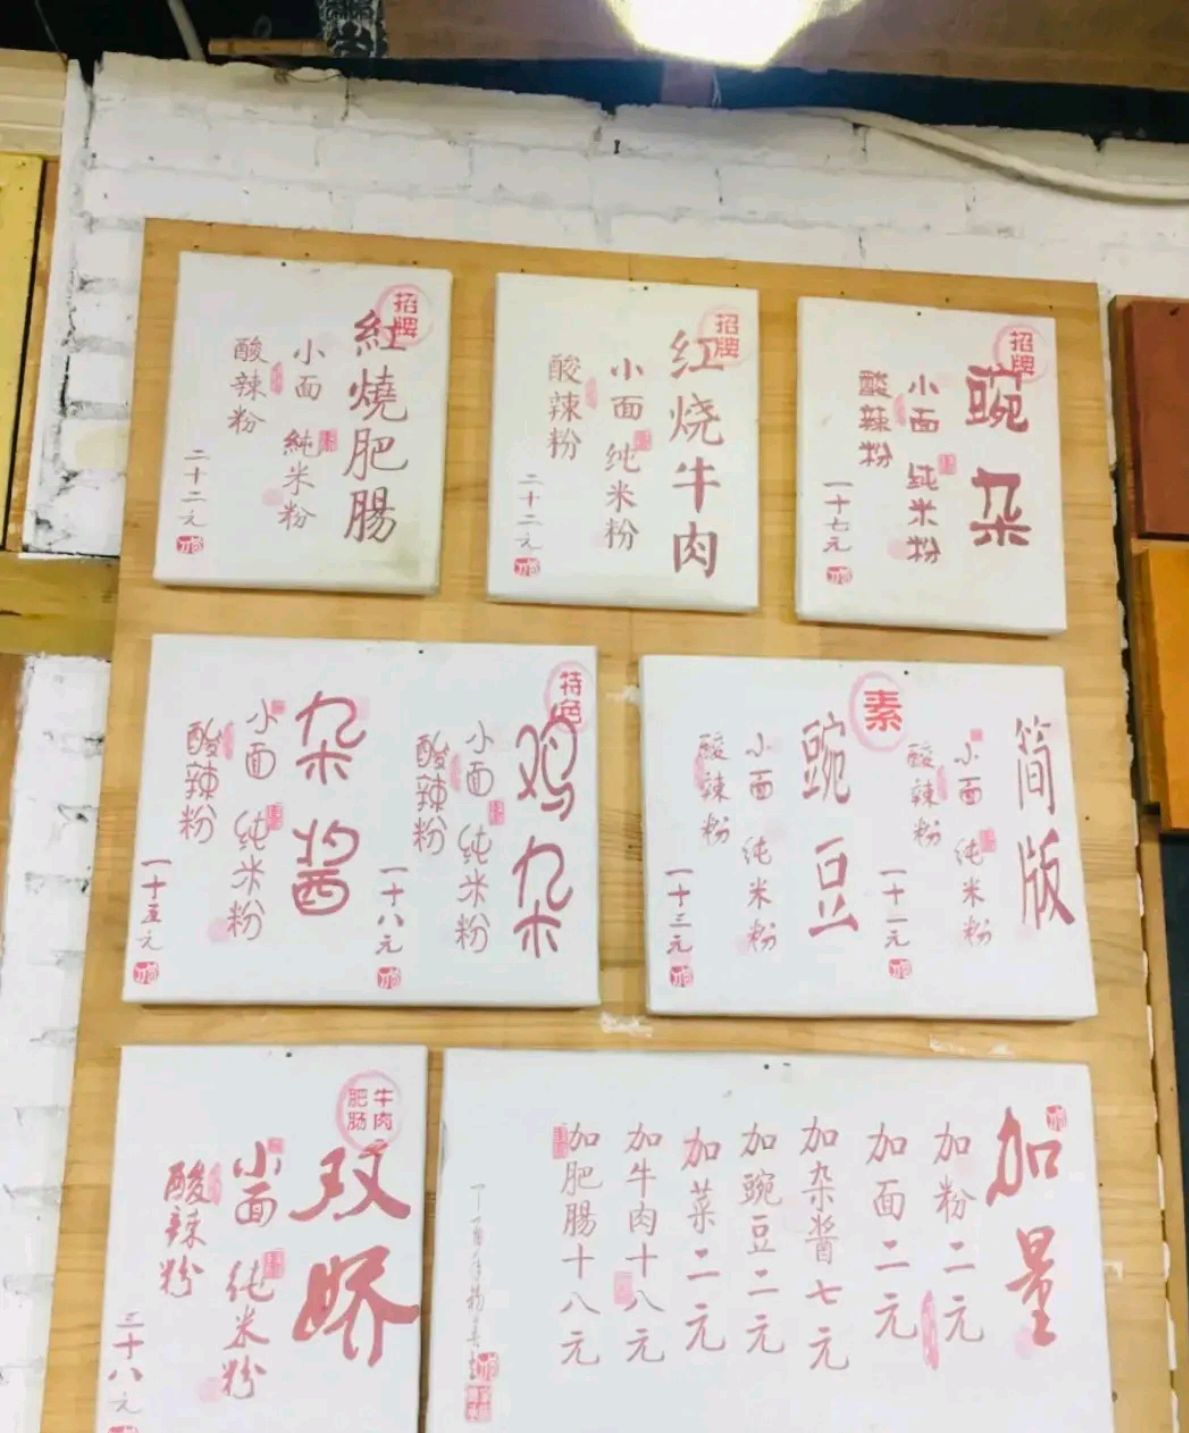 招牌
豌杂
小面 纯米粉
酸辣粉
一十七元
招牌
红烧牛肉
小面 纯米粉
酸辣粉
二十二元
招牌
紅燒肥腸
小面 純米粉
酸辣粉
二十二元
素
简版
小面 纯米粉
酸辣粉
一十一元
豌豆
小面 纯米粉
酸辣粉
一十三元
特色
鸡杂
小面 纯米粉
酸辣粉
一十八元
杂酱
小面 纯米粉
酸辣粉
一十五元
加量
加粉二元
加面二元
加杂酱七元
加豌豆二元
加菜二元
加牛肉十八元
加肥腸十八元
牛肉
肥肠
双娇
小面 纯米粉
酸辣粉
三十八元